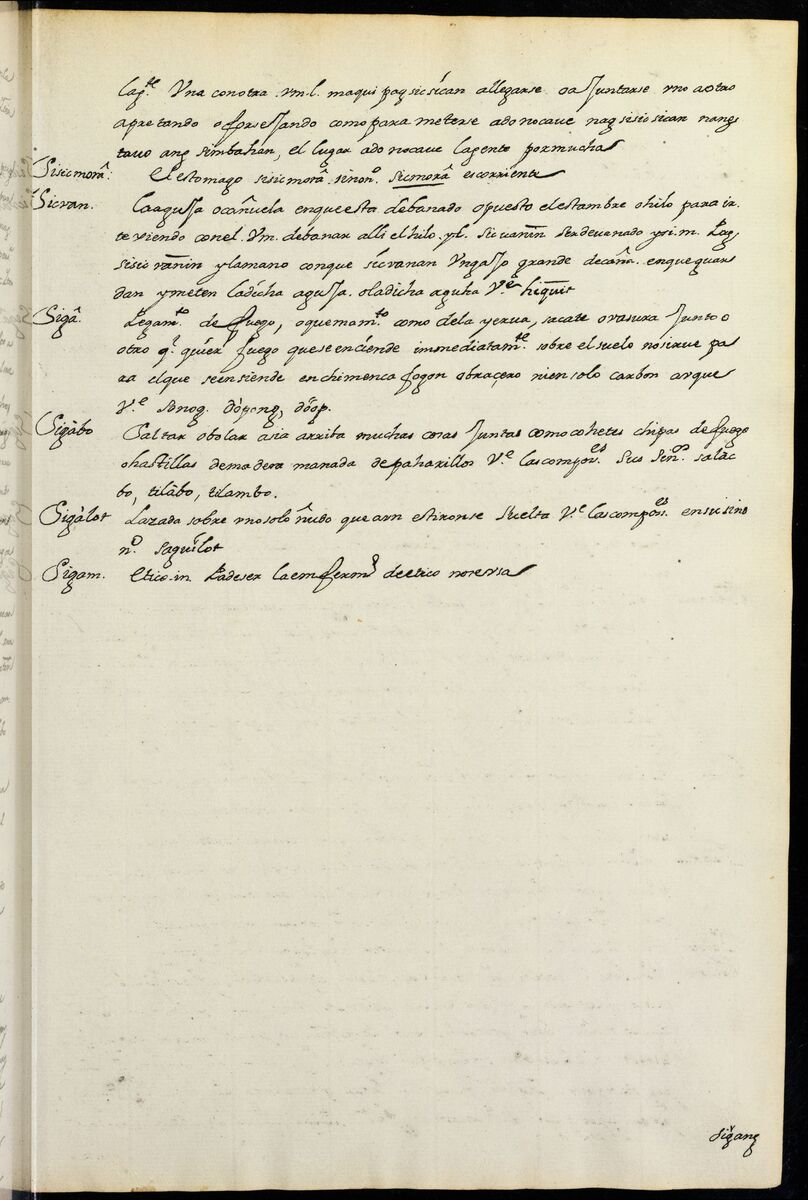 Cap.te Vna con otra .vm.l. maqui pag sicsican allegarse o a Juntarse vno a otro
apretando o forseJando como para meterse ado no caue nag sisio sican nang
tauo ang simbahan, el lugar ado no caue la gente por mucha
Sisicmorâ: El estomago sisicmorâ. sinon.o Sicmorâ es corriente
Sicvan. La aguJa o cañuela en que esta debanado o puesto el estambre o hilo para ir
te xiendo con el. Vm. debanar alli el hilo. yl. Sicvanin ser devanado ysi.m. Pag
sisic vanin y la mano con que sicvanan Vn gaJo grande de caña. en que guar
dan y meten la dicha aguJa. o la dicha aguha V.e hiquit
Sigâ. Pegam.to de fuego, o quemam.to como de la yerua, sacate o vasura Junto o
otro q.l quier fuego que se enciende immediatam.te sobre el suelo no sirue pa
ra el que se ensiende en chimenea fogon o bracero ni en solo carbon arque
V.e sonog. dòpong, dóop.
Sigàbo Saltar o bolar asia arriba muchas cosas Juntas como cohetes chipas de fuego
o hastillas de madera manada de paharillos V.e las compon.es Sus Sin.os salàc
bo, tilàbo, tilambo.
Sigàlot Lazada sobre vno solo ñudo que aun estironse suelta V.e las compon.es en su sino
n.o saguilot
Sigam. Etico-in Padeser la enferm.d de etico no se vsa
Sigang